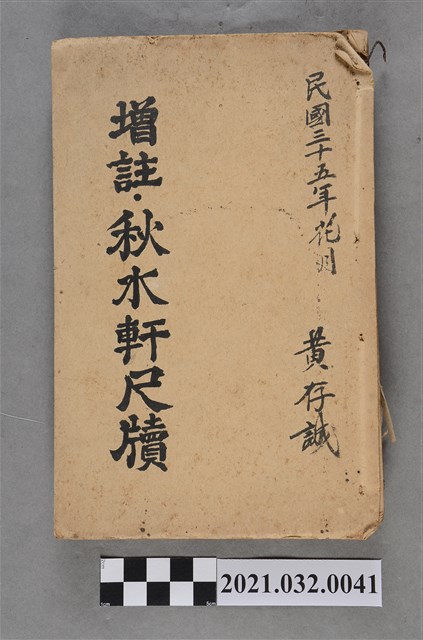 民國三十五年花月
黃存誠
增註·秋水軒尺牘
1cm
5cm
2021.032.0041